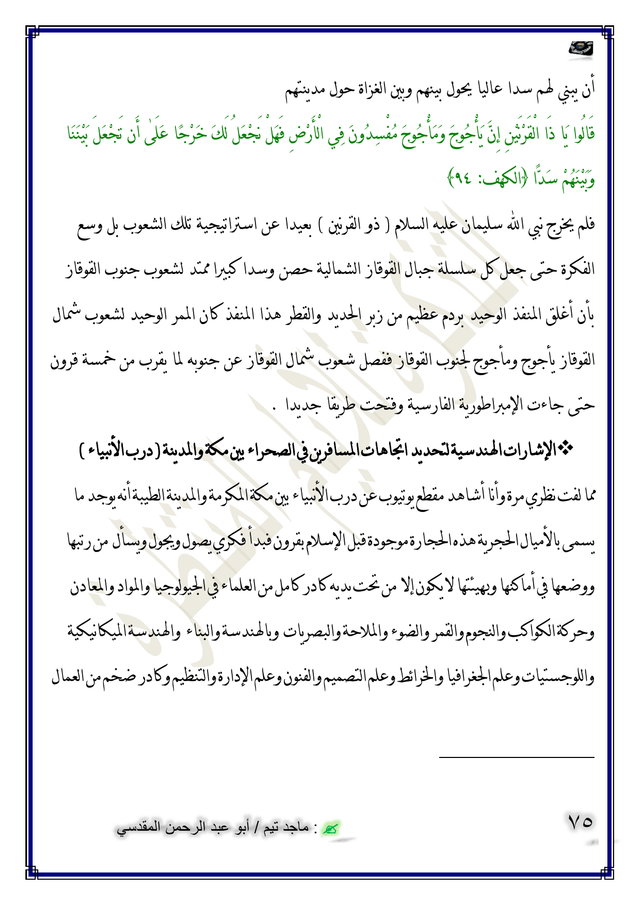 أن يبني لهم سدا عاليا يحول بينهم وبين الغزاة حول مدينتهم
قَالُوا يَا ذَا الْقَرْنَيْنِ إِنَّ يَأْجُوجَ وَمَأْجُوجَ مُفْسِدُونَ فِي الْأَرْضِ فَهَلْ نَجْعَلُ لَكَ خَرْجًا عَلَىٰ أَن تَجْعَلَ بَيْنَنَا
وَبَيْنَهُمْ سَدًّا ﴿الكهف: ٩٤﴾
فلم يخرج نبي الله سليمان عليه السلام ( ذو القرنين ) بعيدا عن استراتيجية تلك الشعوب بل وسع
الفكرة حتى جعل كل سلسلة جبال القوقاز الشمالية حصن وسدا كبيرا ممتد لشعوب جنوب القوقاز
بأن أغلق المنفذ الوحيد بردم عظيم من زبر الحديد والقطر هذا المنفذ كان الممر الوحيد لشعوب شمال
القوقاز يأجوج ومأجوج لجنوب القوقاز ففصل شعوب شمال القوقاز عن جنوبه لما يقرب من خمسة قرون
حتى جاءت الإمبراطورية الفارسية وفتحت طريقا جديدا .
❖ الإشارات الهندسية لتحديد اتجاهات المسافرين في الصحراء بين مكة والمدينة ( درب الأنبياء )
مما لفت نظري مرة وأنا أشاهد مقطع يوتيوب عن درب الأنبياء بين مكة المكرمة والمدينة الطيبة أنه يوجد ما
يسمى بالأميال الحجرية هذه الحجارة موجودة قبل الإسلام بقرون فبدأ فكري يصول ويجول ويسأل من رتبها
ووضعها في أماكنها وبهيئتها لا يكون إلا من تحت يديه كادر كامل من العلماء في الجيولوجيا والمواد والمعادن
وحركة الكواكب والنجوم والقمر والضوء والملاحة والبصريات وبالهندسة والبناء والهندسة الميكانيكية
واللوجستيات وعلم الجغرافيا والخرائط وعلم التصميم والفنون وعلم الإدارة والتنظيم وكادر ضخم من العمال
٧٥
: ماجد تيم / أبو عبد الرحمن المقدسي